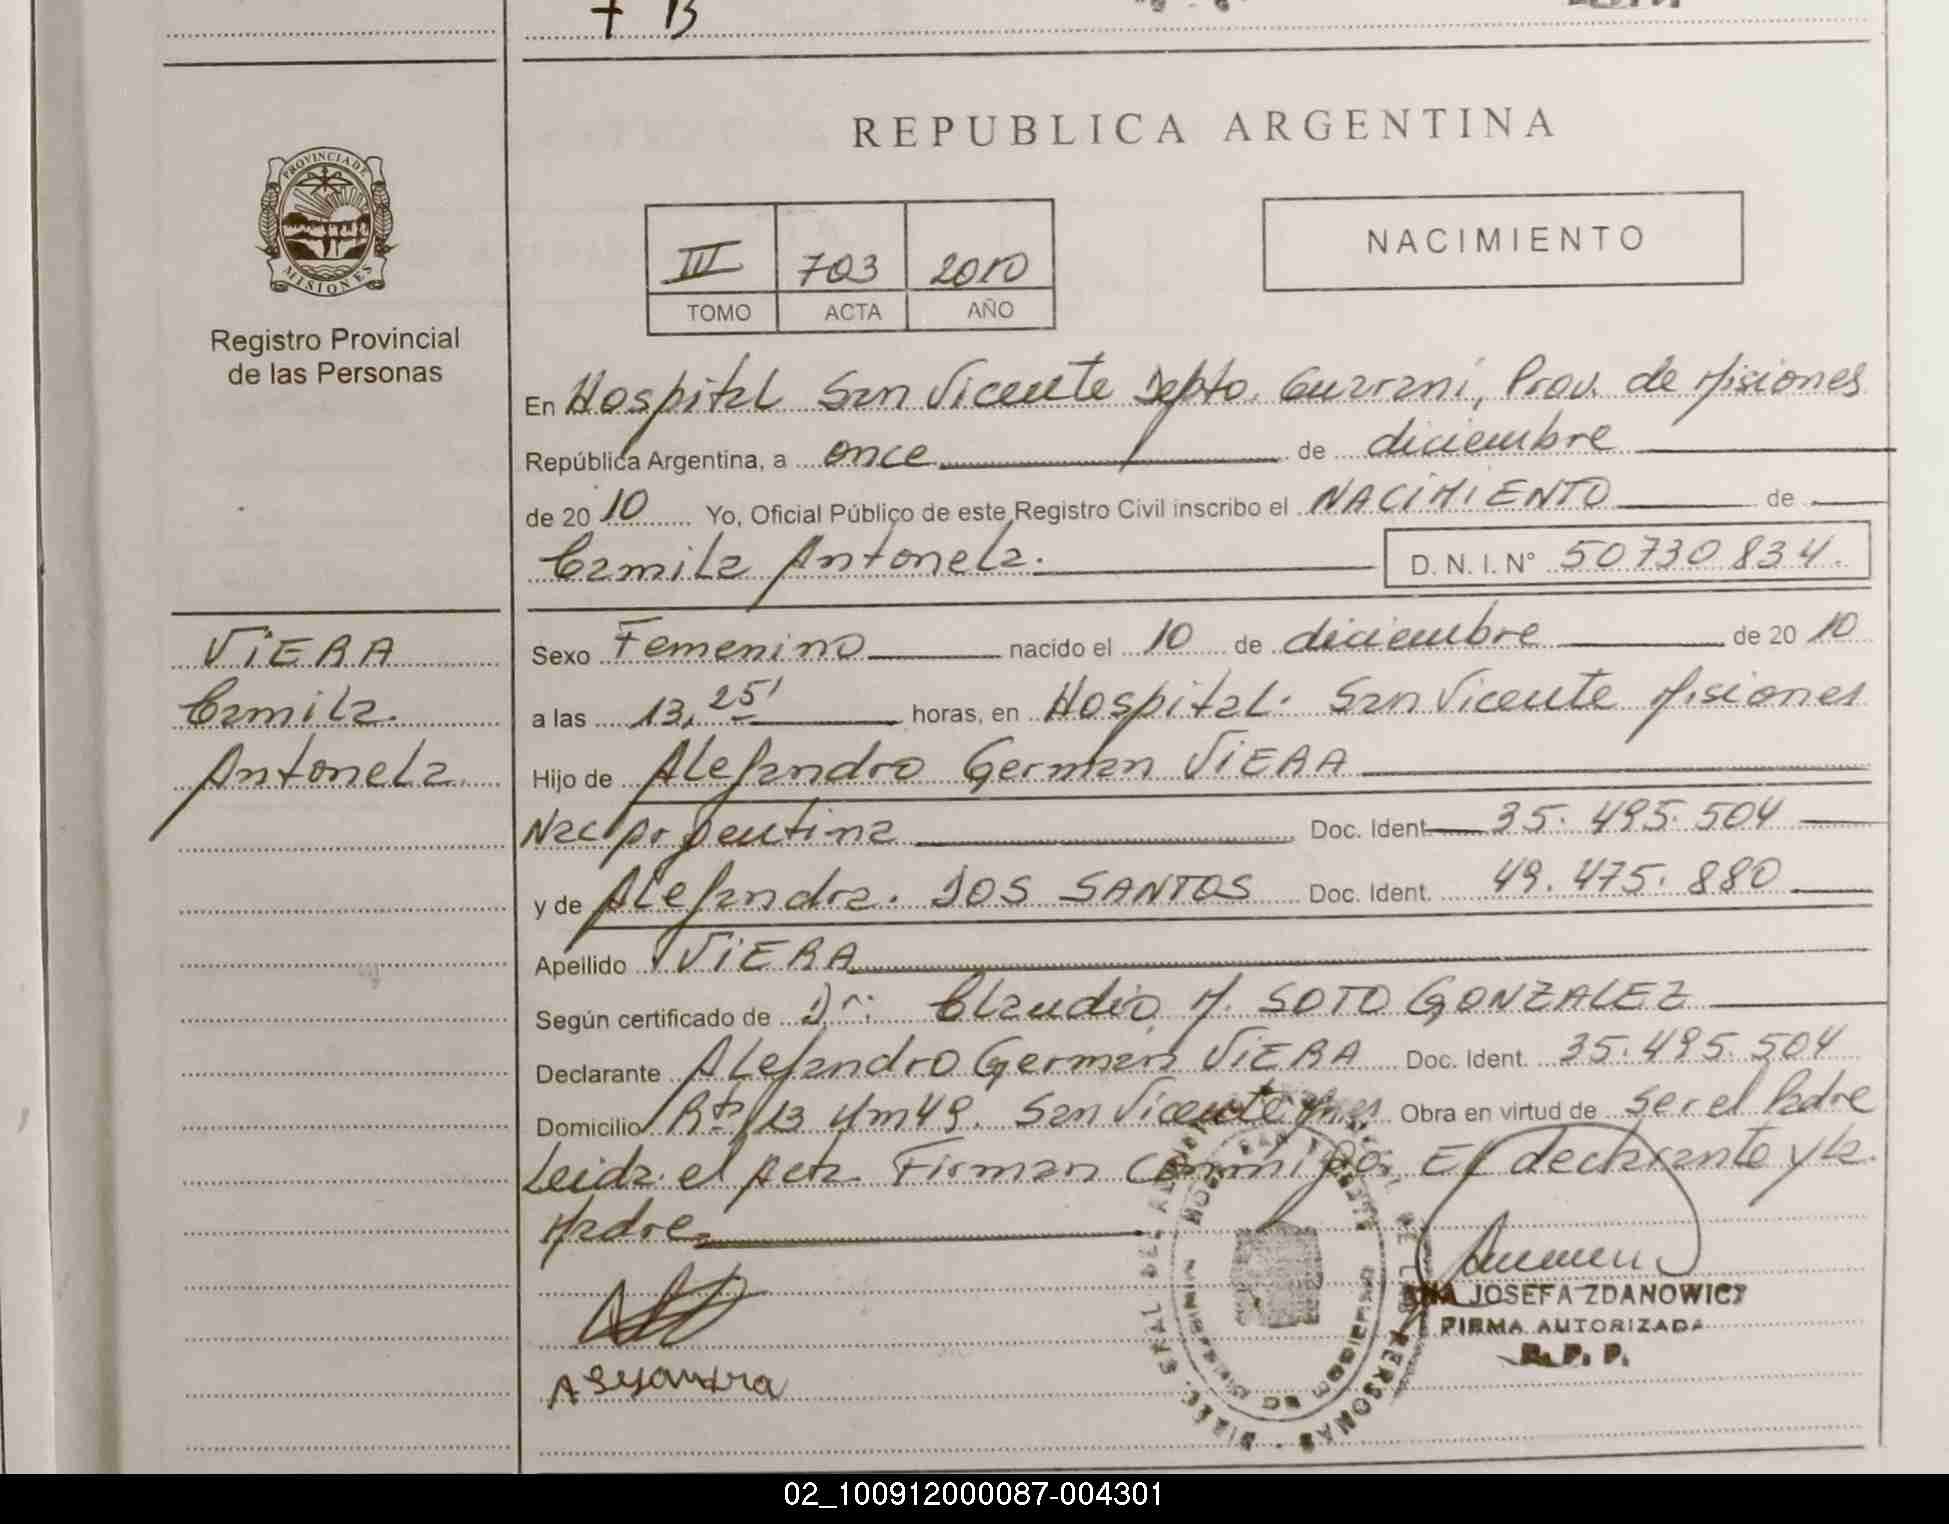 + B
REPUBLICA ARGENTINA
PROVINCIA DE
MISIONES
Registro Provincial
de las Personas
III 703 2010
TOMO ACTA AÑO
NACIMIENTO
En Hospital San Vicente Depto. Guarani, Prov. de Misiones
República Argentina, a once de diciembre
de 20 10 Yo, Oficial Público de este Registro Civil inscribo el NACIMIENTO de
Camila Antonela. D. N. I. N° 50730834.
VIERA
Camila
Antonela
Sexo Femenino nacido el 10 de diciembre de 20 10
a las 13,25' horas, en Hospital San Vicente Misiones
Hijo de Alejandro German VIERA
Nac Argentina Doc. Ident 35.495.504
y de Alejandra. DOS SANTOS Doc. Ident. 49.475.880
Apellido VIERA
Según certificado de Dr: Claudio M. SOTO GONZALEZ
Declarante Alejandro German VIERA Doc. Ident. 35.495.504
Domicilio Rta 13 Km49. San Vicente Mnes Obra en virtud de ser el Padre
Leida el Acta Firman Conmigo El declarante y la
Madre
Alejandra
ANA JOSEFA ZDANOWICZ
FIRMA AUTORIZADA
R. P. P.
02_100912000087-004301